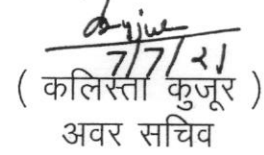 7/7/21
( कलिस्ता कुजूर )
अवर सचिव